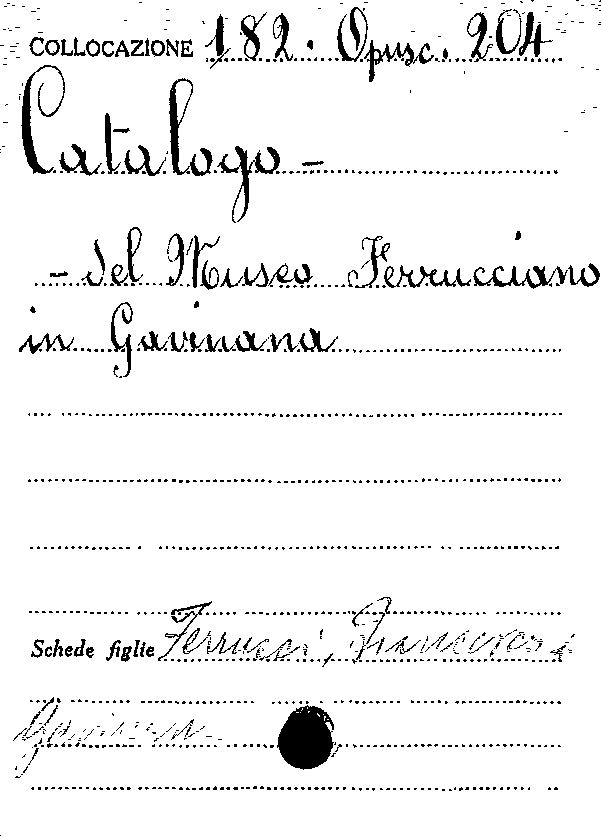 COLLOCAZIONE 182. Opusc. 204
Catalogo -
- del Museo Ferrucciano
in Gavinana
Schede figlie Ferrucci, Francesco